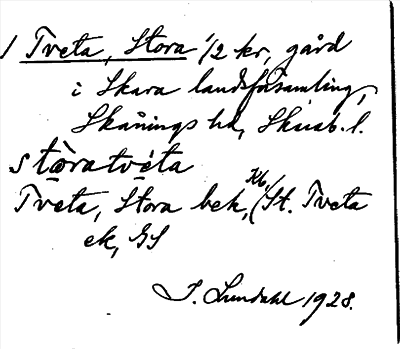 1 Tveta, Stora 1/2 kr, gård
i Skara landsförsamling,
Skånings hd, Skarab. l.
stòratvéta
Tveta, Stora bek, Kb, (St. Tveta
ek, GS
I. Lundahl 1928.